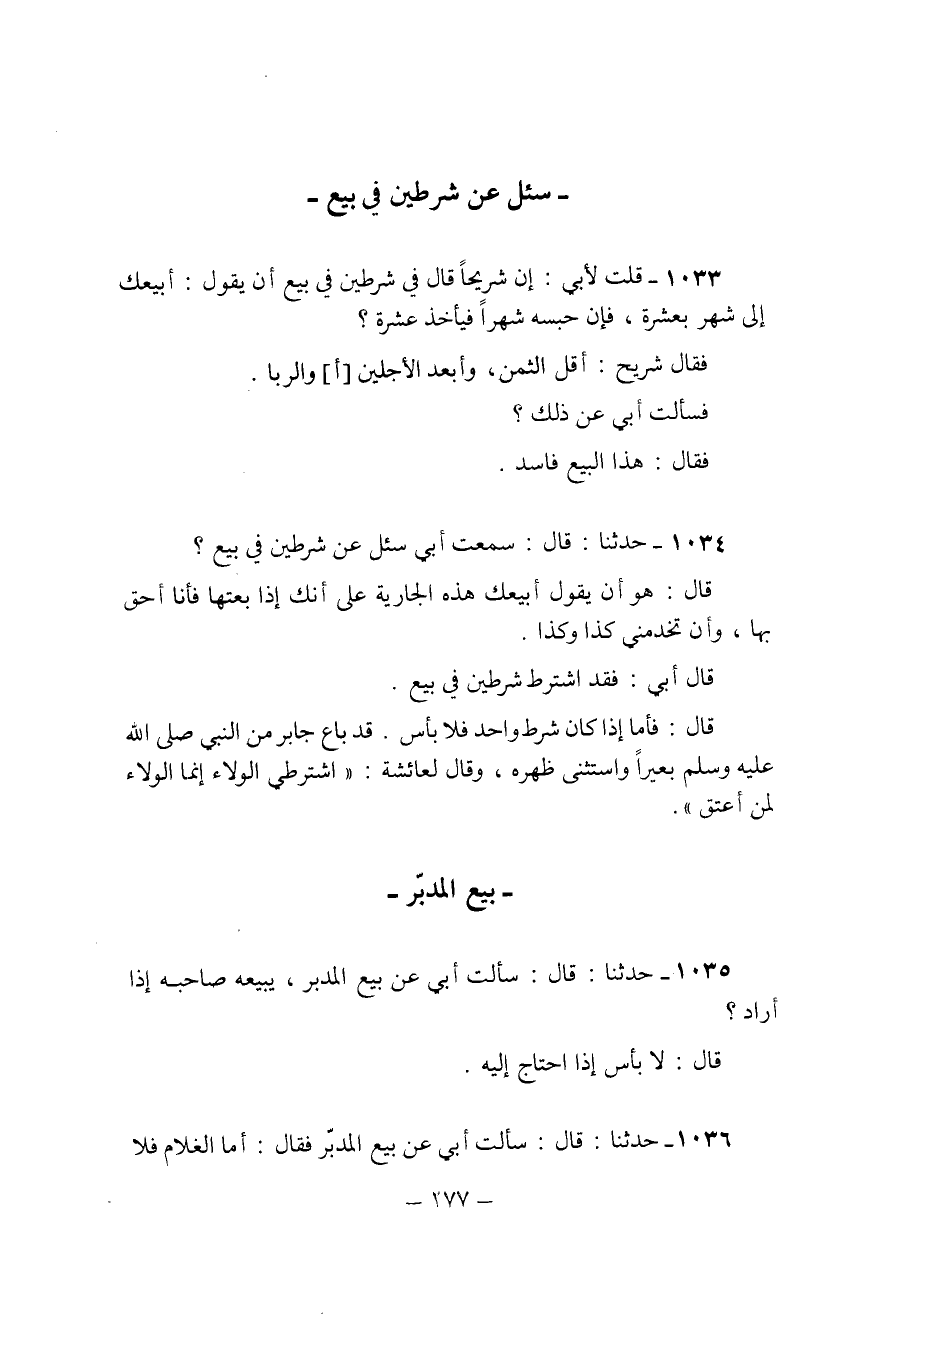 ـ سئل عن شرطين في بيع ـ
١٠٣٣ ـ قلت لأبي : إن شريحاً قال في شرطين في بيع أن يقول : أبيعك
إلى شهر بعشرة ، فإن حبسه شهراً فيأخذ عشرة ؟
فقال شريح : أقل الثمن ، وأبعد الأجلين [أ] والربا .
فسألت أبي عن ذلك ؟
فقال : هذا البيع فاسد .
١٠٣٤ ـ حدثنا : قال : سمعت أبي سئل عن شرطين في بيع ؟
قال : هو أن يقول أبيعك هذه الجارية على أنك إذا بعتها فأنا أحق
بها ، وأن تخدمني كذا وكذا .
قال أبي : فقد اشترط شرطين في بيع .
قال : فأما إذا كان شرط واحد فلا بأس . قد باع جابر من النبي صلى الله
عليه وسلم بعيراً واستثنى ظهره ، وقال لعائشة : « اشترطي الولاء إنما الولاء
لمن أعتق » .
ـ بيع المدبّر ـ
١٠٣٥ ـ حدثنا : قال : سألت أبي عن بيع المدبر ، يبيعه صاحبه إذا
أراد ؟
قال : لا بأس إذا احتاج إليه .
١٠٣٦ ـ حدثنا : قال : سألت أبي عن بيع المدبّر فقال : أما الغلام فلا
ـ ٢٧٧ ـ